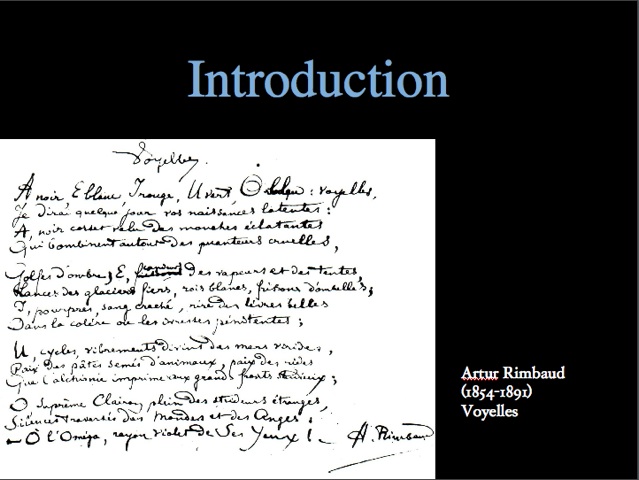 Introduction
Voyelles.
A noir, E blanc, I rouge, U vert, O bleu : voyelles,
Je dirai quelque jour vos naissances latentes :
A, noir corset velu des mouches éclatantes
Qui bombinent autour des puanteurs cruelles,
Golfes d'ombre ; E, des vapeurs et des tentes,
Lances des glaciers fiers, rois blancs, frissons d'ombelles ;
I, pourpres, sang craché, rire des lèvres belles
Dans la colère ou les ivresses pénitentes ;
U, cycles, vibrements divins des mers virides,
Paix des pâtis semés d'animaux, paix des rides
Que l'alchimie imprime aux grands fronts studieux ;
O Suprême Clairon plein des strideurs étranges,
Silences traversés des Mondes et des Anges :
– O l'Oméga, rayon violet de Ses Yeux ! –
A. Rimbaud
Artur Rimbaud
(1854-1891)
Voyelles